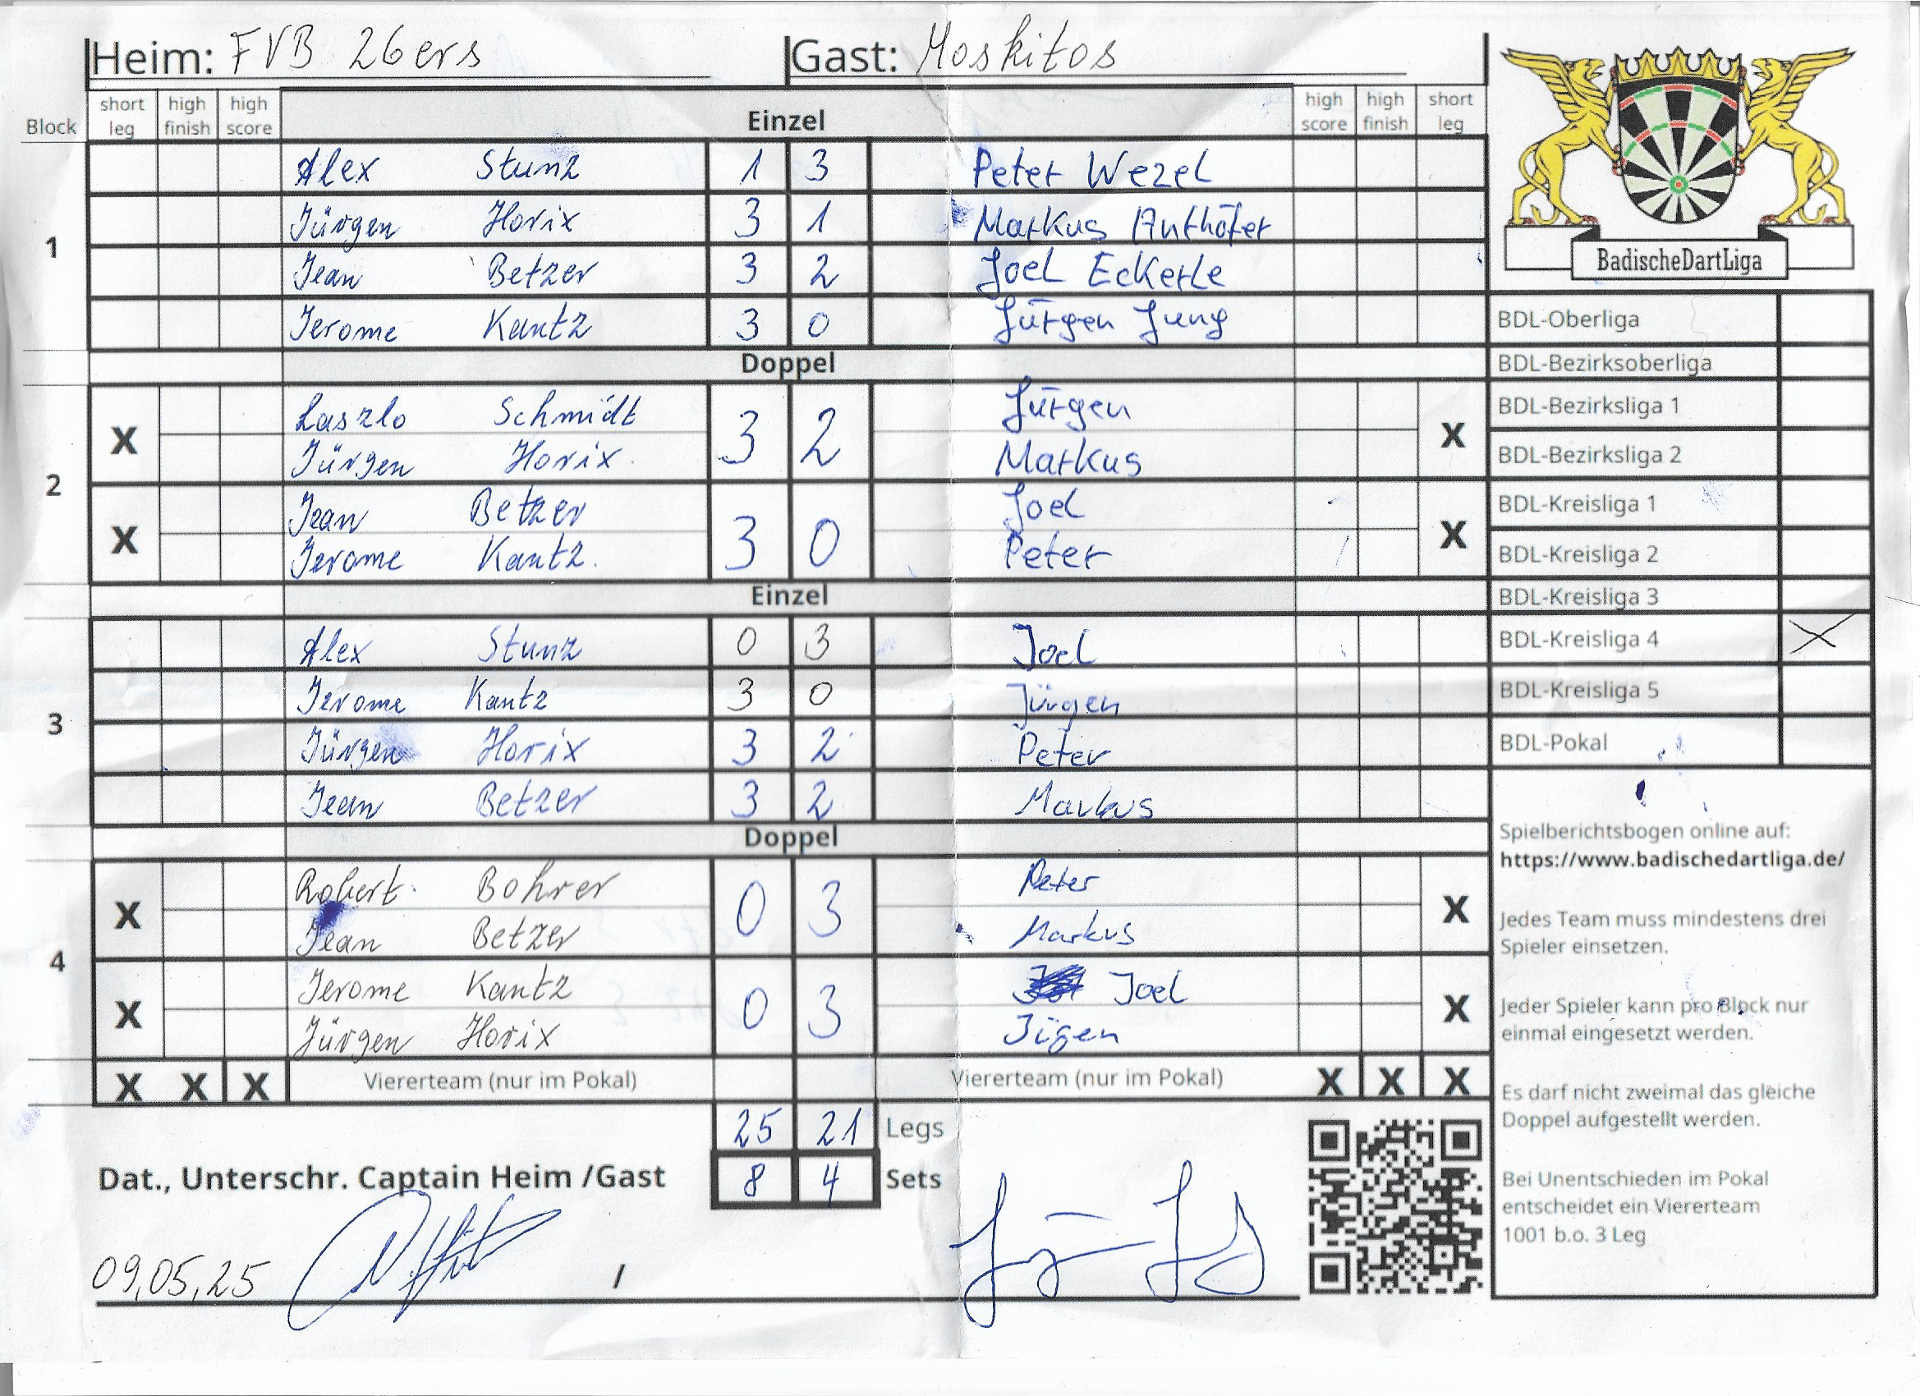 Heim: FVB 26ers Gast: Moskitos
Block short leg high finish high score Einzel high score high finish short leg
1
Alex Stunz 1 3 Peter Wezel
Jürgen Horix 3 1 Markus Anthöfer
Jean Betzer 3 2 Joel Eckerle
Jerome Kautz 3 0 Jürgen Jung
Doppel
2
X Laszlo Schmidt 3 2 Jürgen X
Jürgen Horix Markus
X Jean Betzer 3 0 Joel X
Jerome Kautz Peter
Einzel
3
Alex Stunz 0 3 Joel
Jerome Kautz 3 0 Jürgen
Jürgen Horix 3 2 Peter
Jean Betzer 3 2 Markus
Doppel
4
X Robert Bohrer 0 3 Peter X
Jean Betzer Markus
X Jerome Kautz 0 3 Joel X
Jürgen Horix Jügen
X X X Viererteam (nur im Pokal) Viererteam (nur im Pokal) X X X
25 21 Legs
8 4 Sets
Dat., Unterschr. Captain Heim /Gast
09.05.25 /
BadischeDartLiga
BDL-Oberliga
BDL-Bezirksoberliga
BDL-Bezirksliga 1
BDL-Bezirksliga 2
BDL-Kreisliga 1
BDL-Kreisliga 2
BDL-Kreisliga 3
BDL-Kreisliga 4 X
BDL-Kreisliga 5
BDL-Pokal
Spielberichtsbogen online auf:
https://www.badischedartliga.de/
Jedes Team muss mindestens drei
Spieler einsetzen.
Jeder Spieler kann pro Block nur
einmal eingesetzt werden.
Es darf nicht zweimal das gleiche
Doppel aufgestellt werden.
Bei Unentschieden im Pokal
entscheidet ein Viererteam
1001 b.o. 3 Leg